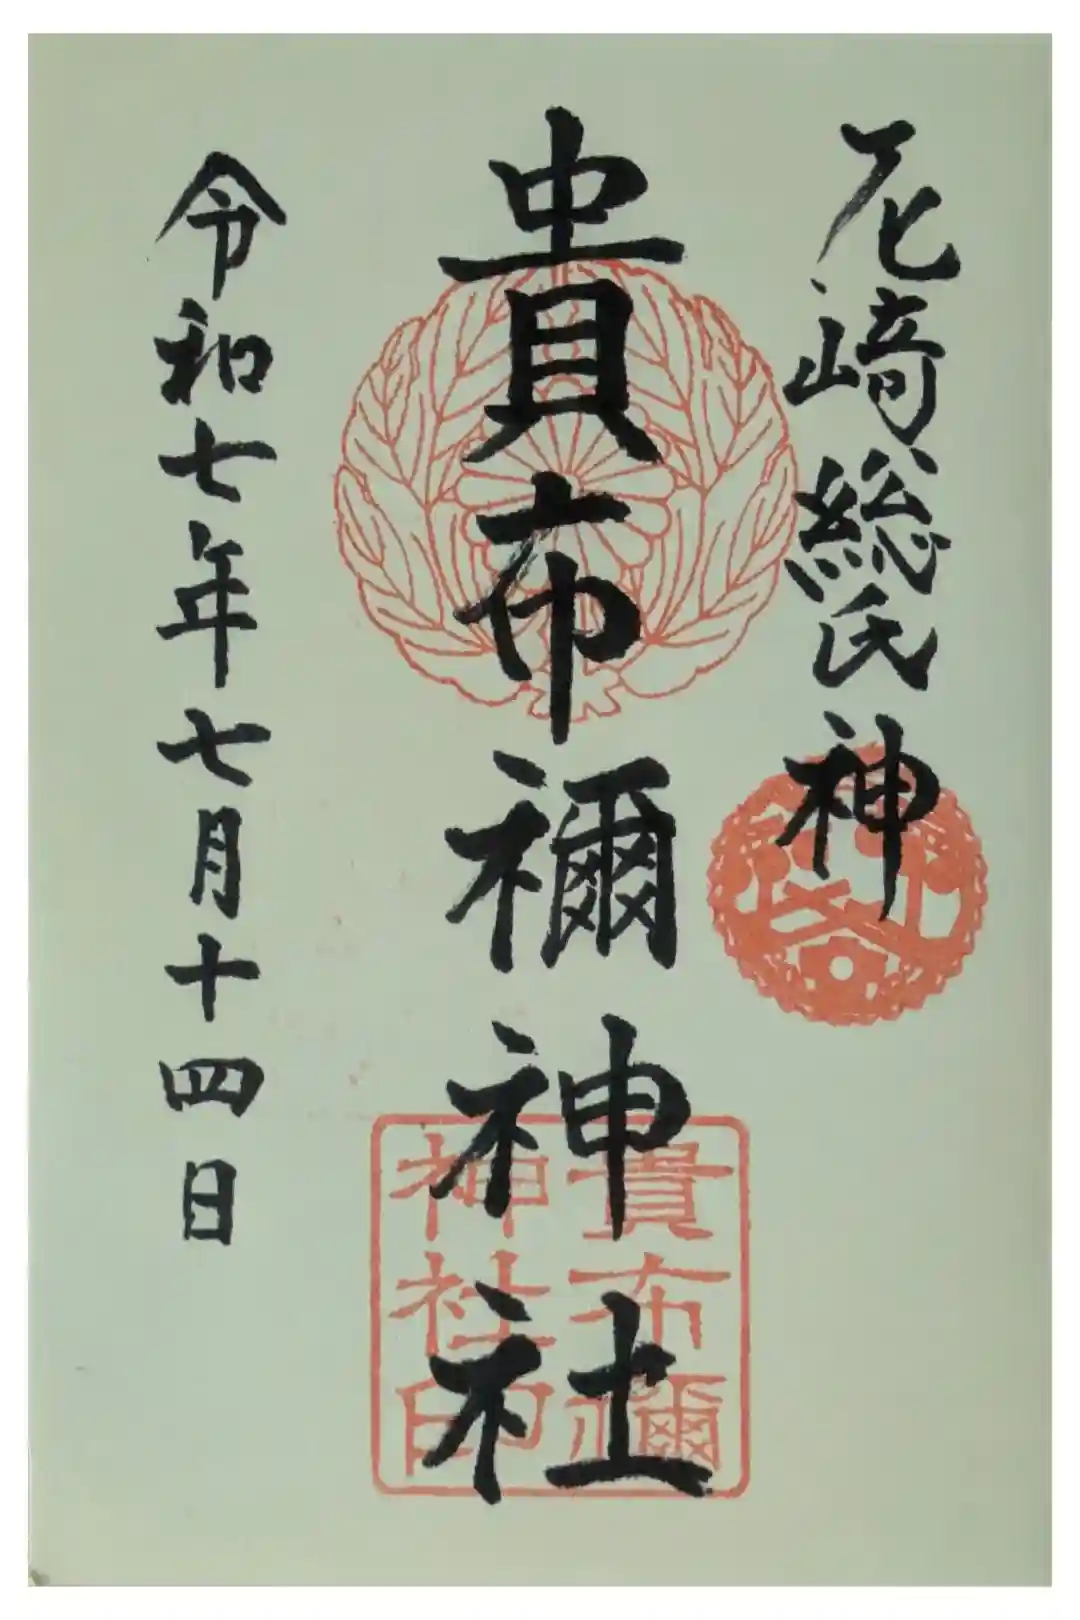 尼崎総氏神
貴布禰神社
貴布禰
神社印
令和七年七月十四日